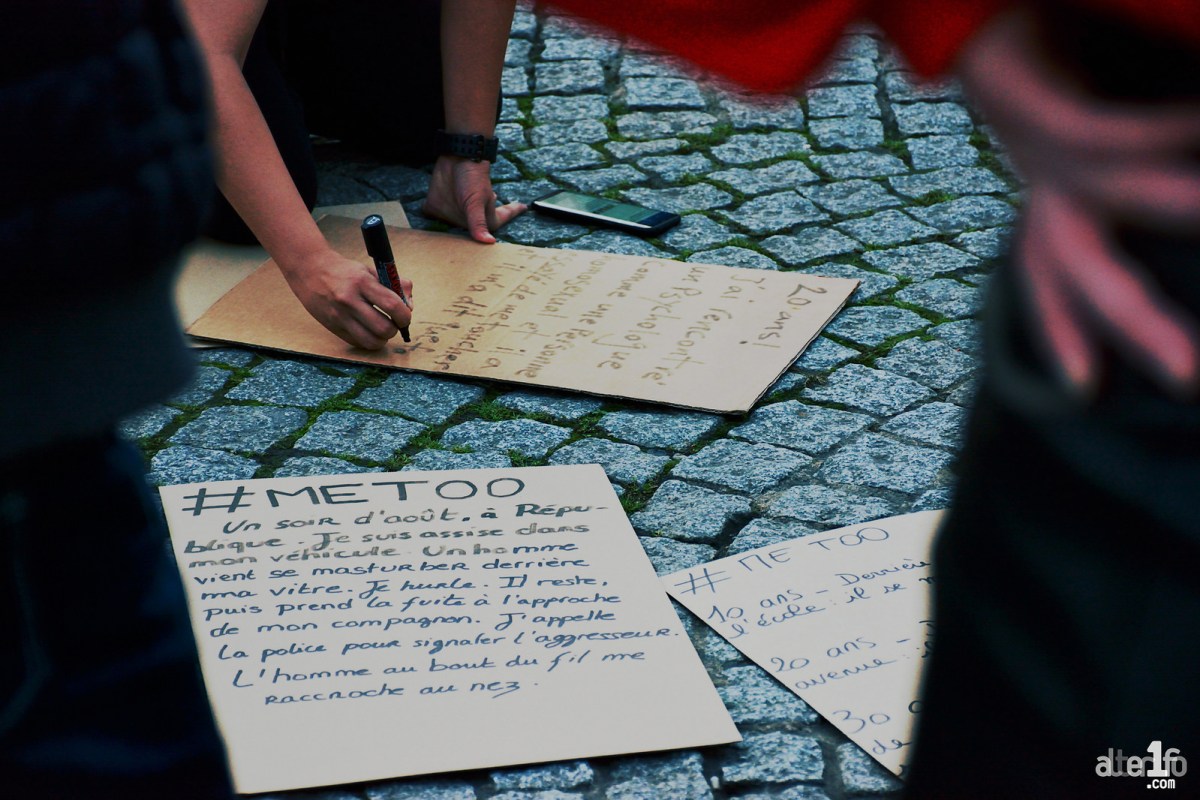 20 ans!
J'ai rencontré
un Psychologue
comme une Personne
et il m'a dit
#METOO
Un soir d'août, à Répu-
blique. Je suis assise dans
mon véhicule. Un homme
vient se masturber derrière
ma vitre. Je hurle. Il reste,
puis prend la fuite à l'approche
de mon compagnon. J'appelle
la police pour signaler l'aggresseur.
L'homme au bout du fil me
raccroche au nez.
# ME TOO
10 ans - Derrière
l'école : il se
20 ans -
avenue :
30
de
alter1fo
.com